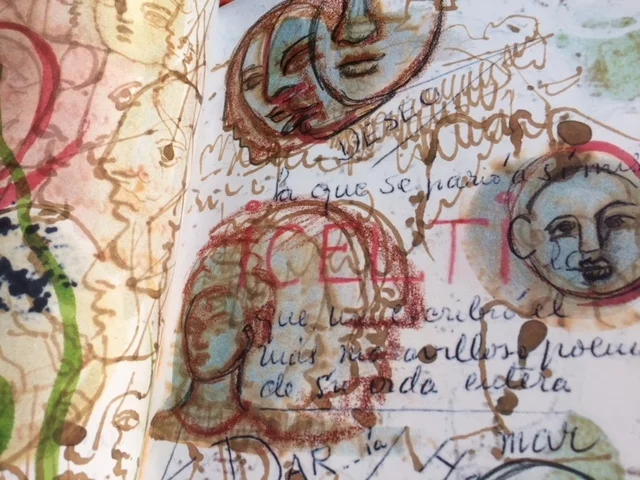 DESEO
la que se parió a sí mis
¡CELTI
que un escribió el
más maravilloso poem
de su vida entera
DAR ía y mar